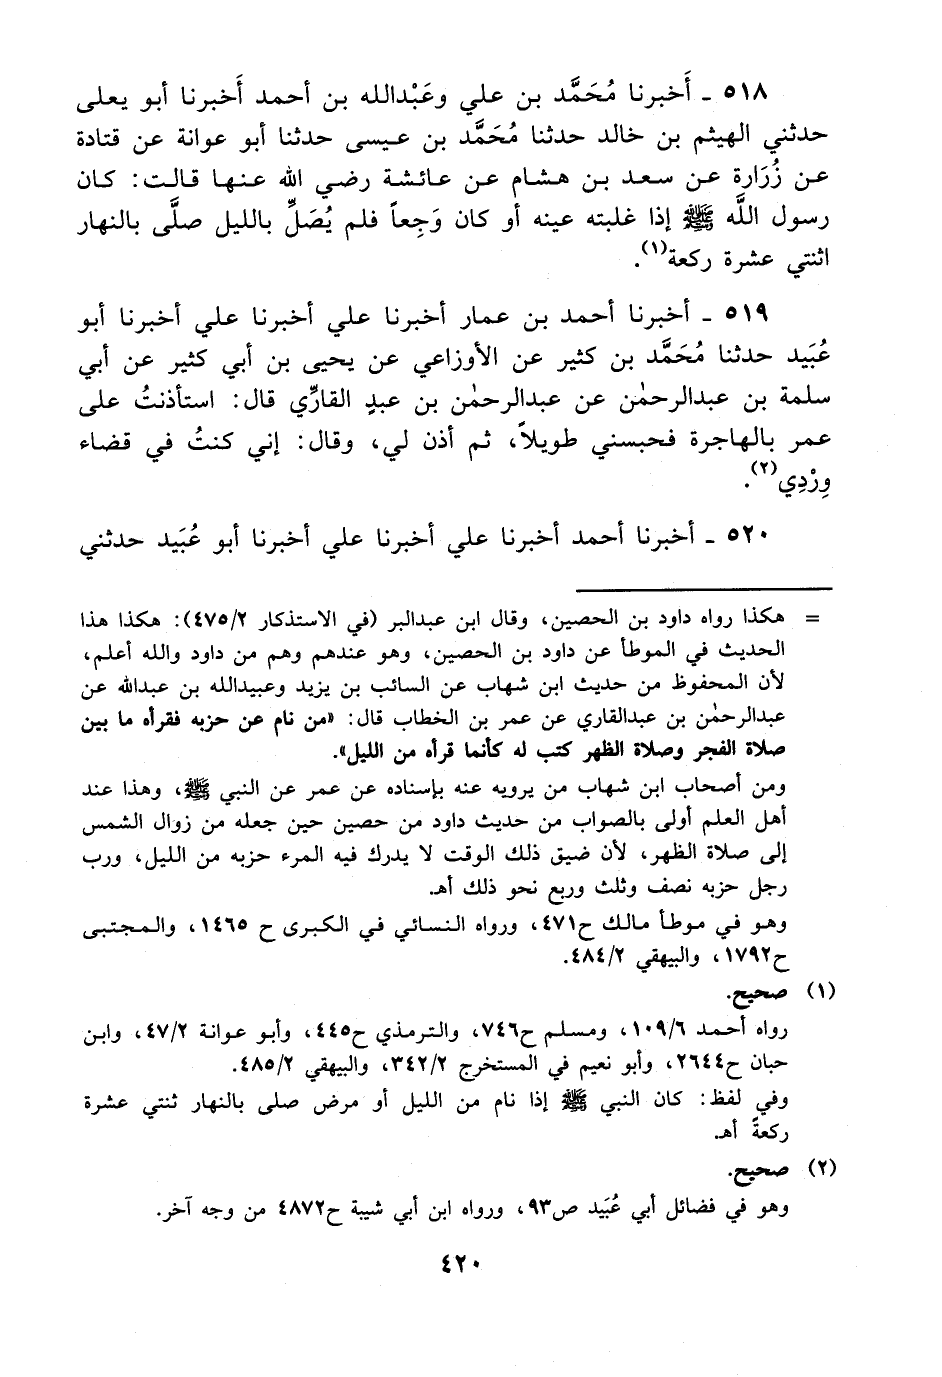 ٥١٨ ـ أَخبرنا مُحَمَّد بن علي وعَبْدالله بن أحمد أَخبرنا أبو يعلى
حدثني الهيثم بن خالد حدثنا مُحَمَّد بن عيسى حدثنا أبو عوانة عن قتادة
عن زُرَارة عن سعد بن هشام عن عائشة رضي الله عنها قالت: كان
رسول اللَّه ﷺ إذا غلبته عينه أو كان وَجِعاً فلم يُصَلِّ بالليل صلَّى بالنهار
اثنتي عشرة ركعة(١).
٥١٩ ـ أخبرنا أحمد بن عمار أخبرنا علي أخبرنا علي أخبرنا أبو
عُبَيد حدثنا مُحَمَّد بن كثير عن الأوزاعي عن يحيى بن أبي كثير عن أبي
سلمة بن عبدالرحمٰن عن عبدالرحمٰن بن عبدٍ القارِّي قال: استأذنتُ على
عمر بالهاجرة فحبسني طويلاً، ثم أذن لي، وقال: إني كنتُ في قضاء
وِرْدِي(٢).
٥٢٠ ـ أخبرنا أحمد أخبرنا علي أخبرنا علي أخبرنا أبو عُبَيد حدثني
= هكذا رواه داود بن الحصين، وقال ابن عبدالبر (في الاستذكار ٤٧٥/٢): هكذا هذا
الحديث في الموطأ عن داود بن الحصين، وهو عندهم وهم من داود والله أعلم،
لأن المحفوظ من حديث ابن شهاب عن السائب بن يزيد وعبيدالله بن عبدالله عن
عبدالرحمٰن بن عبدالقاري عن عمر بن الخطاب قال: «من نام عن حزبه فقرأه ما بين
صلاة الفجر وصلاة الظهر كتب له كأنما قرأه من الليل».
ومن أصحاب ابن شهاب من يرويه عنه بإسناده عن عمر عن النبي ﷺ، وهذا عند
أهل العلم أولى بالصواب من حديث داود من حصين حين جعله من زوال الشمس
إلى صلاة الظهر، لأن ضيق ذلك الوقت لا يدرك فيه المرء حزبه من الليل، ورب
رجل حزبه نصف وثلث وربع نحو ذلك أهـ.
وهو في موطأ مالك ح٤٧١، ورواه النسائي في الكبرى ح ١٤٦٥، والمجتبى
ح١٧٩٢، والبيهقي ٤٨٤/٢.
(١) صحيح.
رواه أحمد ١٠٩/٦، ومسلم ح٧٤٦، والترمذي ح٤٤٥، وأبو عوانة ٤٧/٢، وابن
حبان ح٢٦٤٤، وأبو نعيم في المستخرج ٣٤٢/٢، والبيهقي ٤٨٥/٢.
وفي لفظ: كان النبي ﷺ إذا نام من الليل أو مرض صلى بالنهار ثنتي عشرة
ركعةً أهـ.
(٢) صحيح.
وهو في فضائل أبي عُبَيد ص٩٣، ورواه ابن أبي شيبة ح٤٨٧٢ من وجه آخر.
٤٢٠